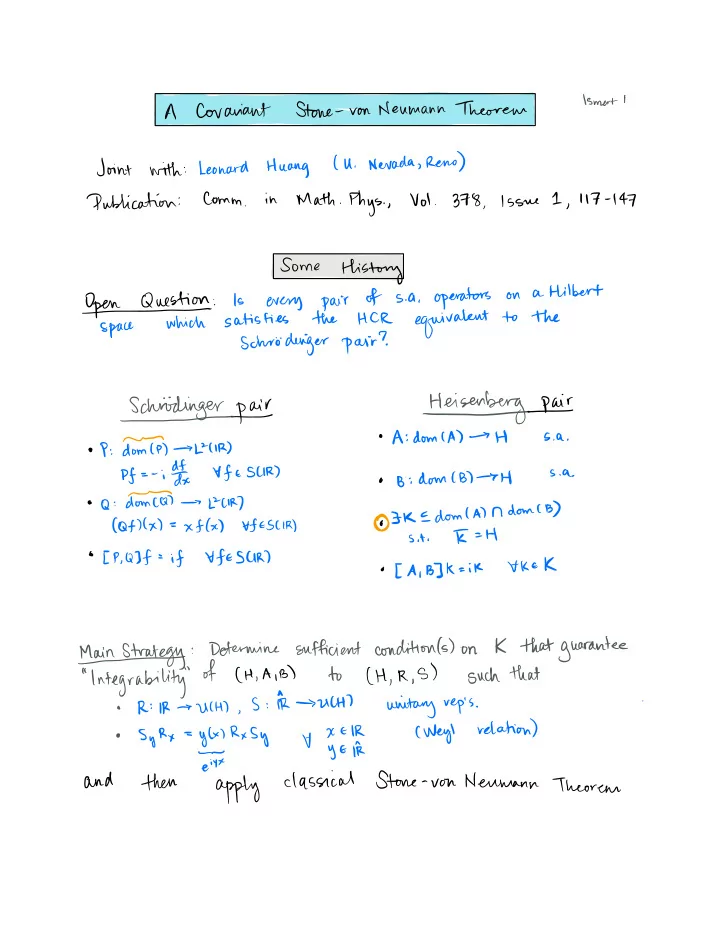 Ismert 1
A Covariant Stone-von Neumann Theorem
Joint with: Leonard Huang (U. Nevada, Reno)
Publication: Comm. in Math. Phys., Vol. 378, Issue 1, 117-147
Some History
Open Question: Is every pair of s.a. operators on a Hilbert
space which satisfies the HCR equivalent to the
Schrödinger pair?
Schrödinger pair
• P: dom(P) → L²(ℝ)
Pf = -i df/dx ∀f ∈ S(ℝ)
• Q: dom(Q) → L²(ℝ)
(Qf)(x) = xf(x) ∀f∈S(ℝ)
• [P,Q]f = if ∀f∈S(ℝ)
Heisenberg pair
• A: dom(A) → H s.a.
• B: dom(B) → H s.a
• ∃K ≤ dom(A) ∩ dom(B)
s.t. K̅ = H
• [A,B]k = ik ∀k∈K
Main Strategy: Determine sufficient condition(s) on K that guarantee
"Integrability" of (H,A,B) to (H,R,S) such that
• R: ℝ → U(H), S: ℝ̂ → U(H) unitary rep's.
• S_y R_x = y(x) R_x S_y ∀ x ∈ ℝ (Weyl relation)
y ∈ ℝ̂
e^{iyx}
and then apply classical Stone-von Neumann Theorem